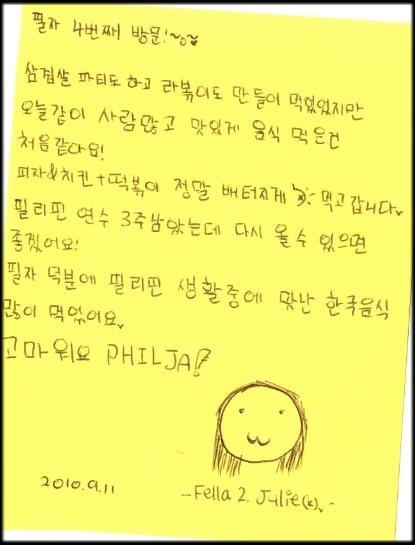 필자 4번째 방문!~♡
삼겹살 파티도 하고 라볶이도 만들어 먹었었지만
오늘같이 사람많고 맛있게 음식 먹은건
처음같아요!
피자&치킨+떡볶이 정말 배터지게 먹고갑니다♥
필리핀 연수 3주남았는데 다시 올 수 있으면
좋겠어요!
필자 덕분에 필리핀 생활중에 맛난 한국음식
많이 먹었어요♥
고마워요 PHILJA!
2010.9.11
-Fella 2. Julie(K)♥-